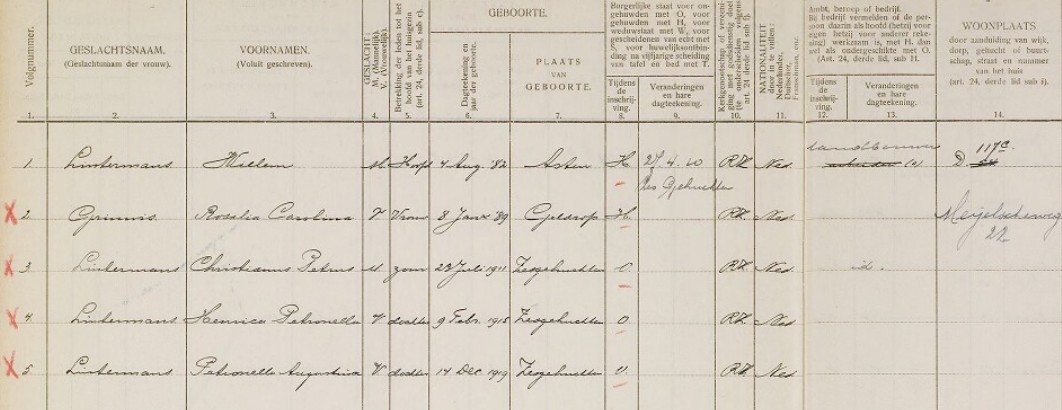 Volgnummer.
GESLACHTSNAAM.
(Geslachtsnaam der vrouw).
VOORNAMEN.
(Voluit geschreven).
GESLACHT:
M. (Mannelijk).
V. (Vrouwelijk).
Betrekking der leden tot het
hoofd van het huisgezin
(art. 24, derde lid, sub c).
GEBOORTE.
Dagteekening en
jaar der geboorte.
PLAATS
VAN
GEBOORTE.
Burgerlijke staat voor on-
gehuwden met O, voor
gehuwden met H, voor
weduwstaat met W, voor
gescheidenen van echt met
S, voor huwelijksonthin-
ding na vijfjarige scheiding
van tafel en bed met T.
Tijdens
de
inschrij-
ving.
Veranderingen
en hare
dagteekening.
Kerkgenootschap of vereeni-
ging met godsdienstig doel
(te onderscheiden volgens
art. 24 derde lid sub f).
NATIONALITEIT
door in te vullen:
Nederlander,
Duitscher,
Franschman, enz.
Ambt, beroep of bedrijf.
Bij bedrijf vermelden of de per-
soon daarin als hoofd (hetzij voor
eigen hetzij voor anderer reke-
ning) werkzaam is, met H. dan
wel als ondergeschikte met O.
(Art. 24, derde lid, sub H).
Tijdens
de
inschrij-
ving.
Veranderingen
en hare
dagteekening.
WOONPLAATS
door aanduiding van wijk,
dorp, gehucht of buurt-
schap, straat en nummer
van het huis
(art. 24, derde lid sub i).
1. 2. 3. 4. 5. 6. 7. 8. 9. 10. 11. 12. 13. 14.
landbouwer 117c.
1. Lintermans Willem M. Hoofd 4 Aug. '82 Asten H. 27.4.20 R.K. Ned. arbeider (o) D.
2. Grimmis Rosalia Carolina V Vrouw 8 Janr. '89 Geldrop H. R.K. Ned. Meijelscheweg
22
3 Lintermans Christianus Petrus M zoon 23 Juli 1911 Zesgehuchten O. R.K. Ned. id.
4. Lintermans Henrica Petronella V dochter 9 Febr. 1915 Zesgehuchten O. R.K. Ned.
5. Lintermans Petronella Augustina V dochter 14 Dec. 1919 Zesgehuchten O. R.K. Ned.